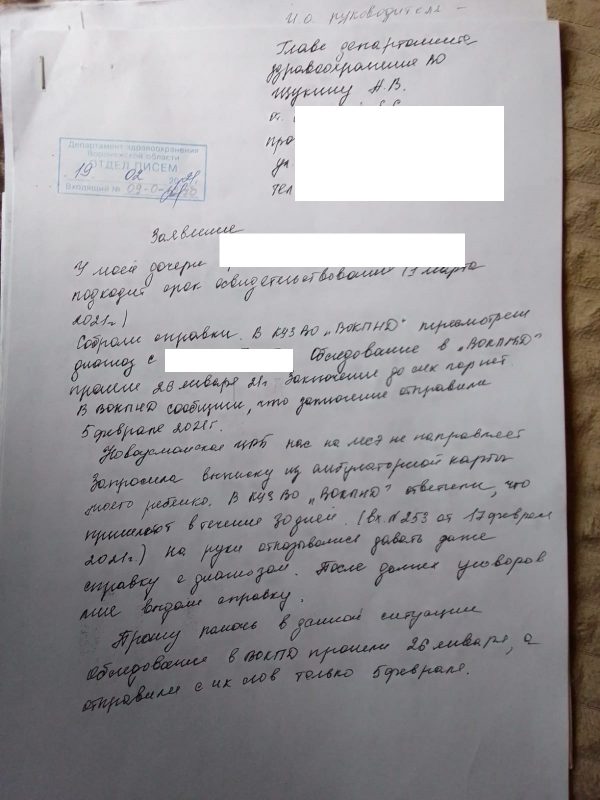 И.о. руководителя -
Главе департамента
здравоохранения ВО
Щукину А.В.
от
про
ул
тел
Департамент здравоохранения
Воронежской области
ОТДЕЛ ПИСЕМ
19 02 2021 г.
Входящий №
Заявление
У моей дочери
подходит срок освидетельствования 19 марта
2021г.)
Собрали справки. В КУЗ ВО „ВОКПНД" пересмотрели
диагноз с Обследование в „ВОКПНД"
прошли 26 января 21г. Заключения до сих пор нет.
В ВОКПНД сообщили, что заключение отправили
5 февраля 2021г.
Новоусманская ЦРБ нас на МСЭ не направляет
Запросила выписку из амбулаторной карты
моего ребенка. В КУЗ ВО „ВОКПНД" ответили, что
пришлют в течение 30 дней. (вх. №253 от 17 февраля
2021г.) На руки отказывались давать даже
справку с диагнозом. После долгих уговоров
мне выдали справку.
Прошу помочь в данной ситуации
Обследование в ВОКПД прошли 26 января, а
отправили с их слов только 5 февраля.